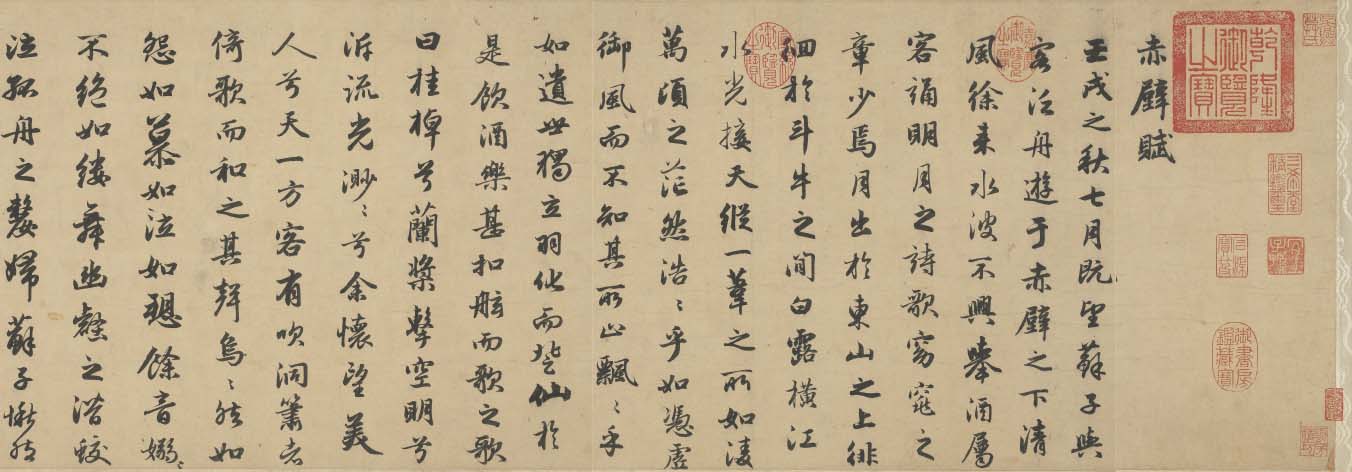 乾隆御覽之寶
三希堂精鑑璽
宜子孫
石渠寶笈
御書房鑑藏寶
赤壁賦
壬戌之秋七月既望蘇子與
客泛舟遊于赤壁之下清
風徐來水波不興舉酒屬
客誦明月之詩歌窈窕之
章少焉月出於東山之上徘
徊於斗牛之間白露橫江
水光接天縱一葦之所如凌
萬頃之茫然浩〻乎如憑虛
御風而不知其所止飄〻乎
如遺世獨立羽化而登仙於
是飲酒樂甚扣舷而歌之歌
曰桂棹兮蘭槳擊空明兮
泝流光渺〻兮余懷望美
人兮天一方客有吹洞簫者
倚歌而和之其聲烏〻然如
怨如慕如泣如愬餘音嫋〻
不絕如縷舞幽壑之潛蛟
泣孤舟之嫠婦蘇子愀然